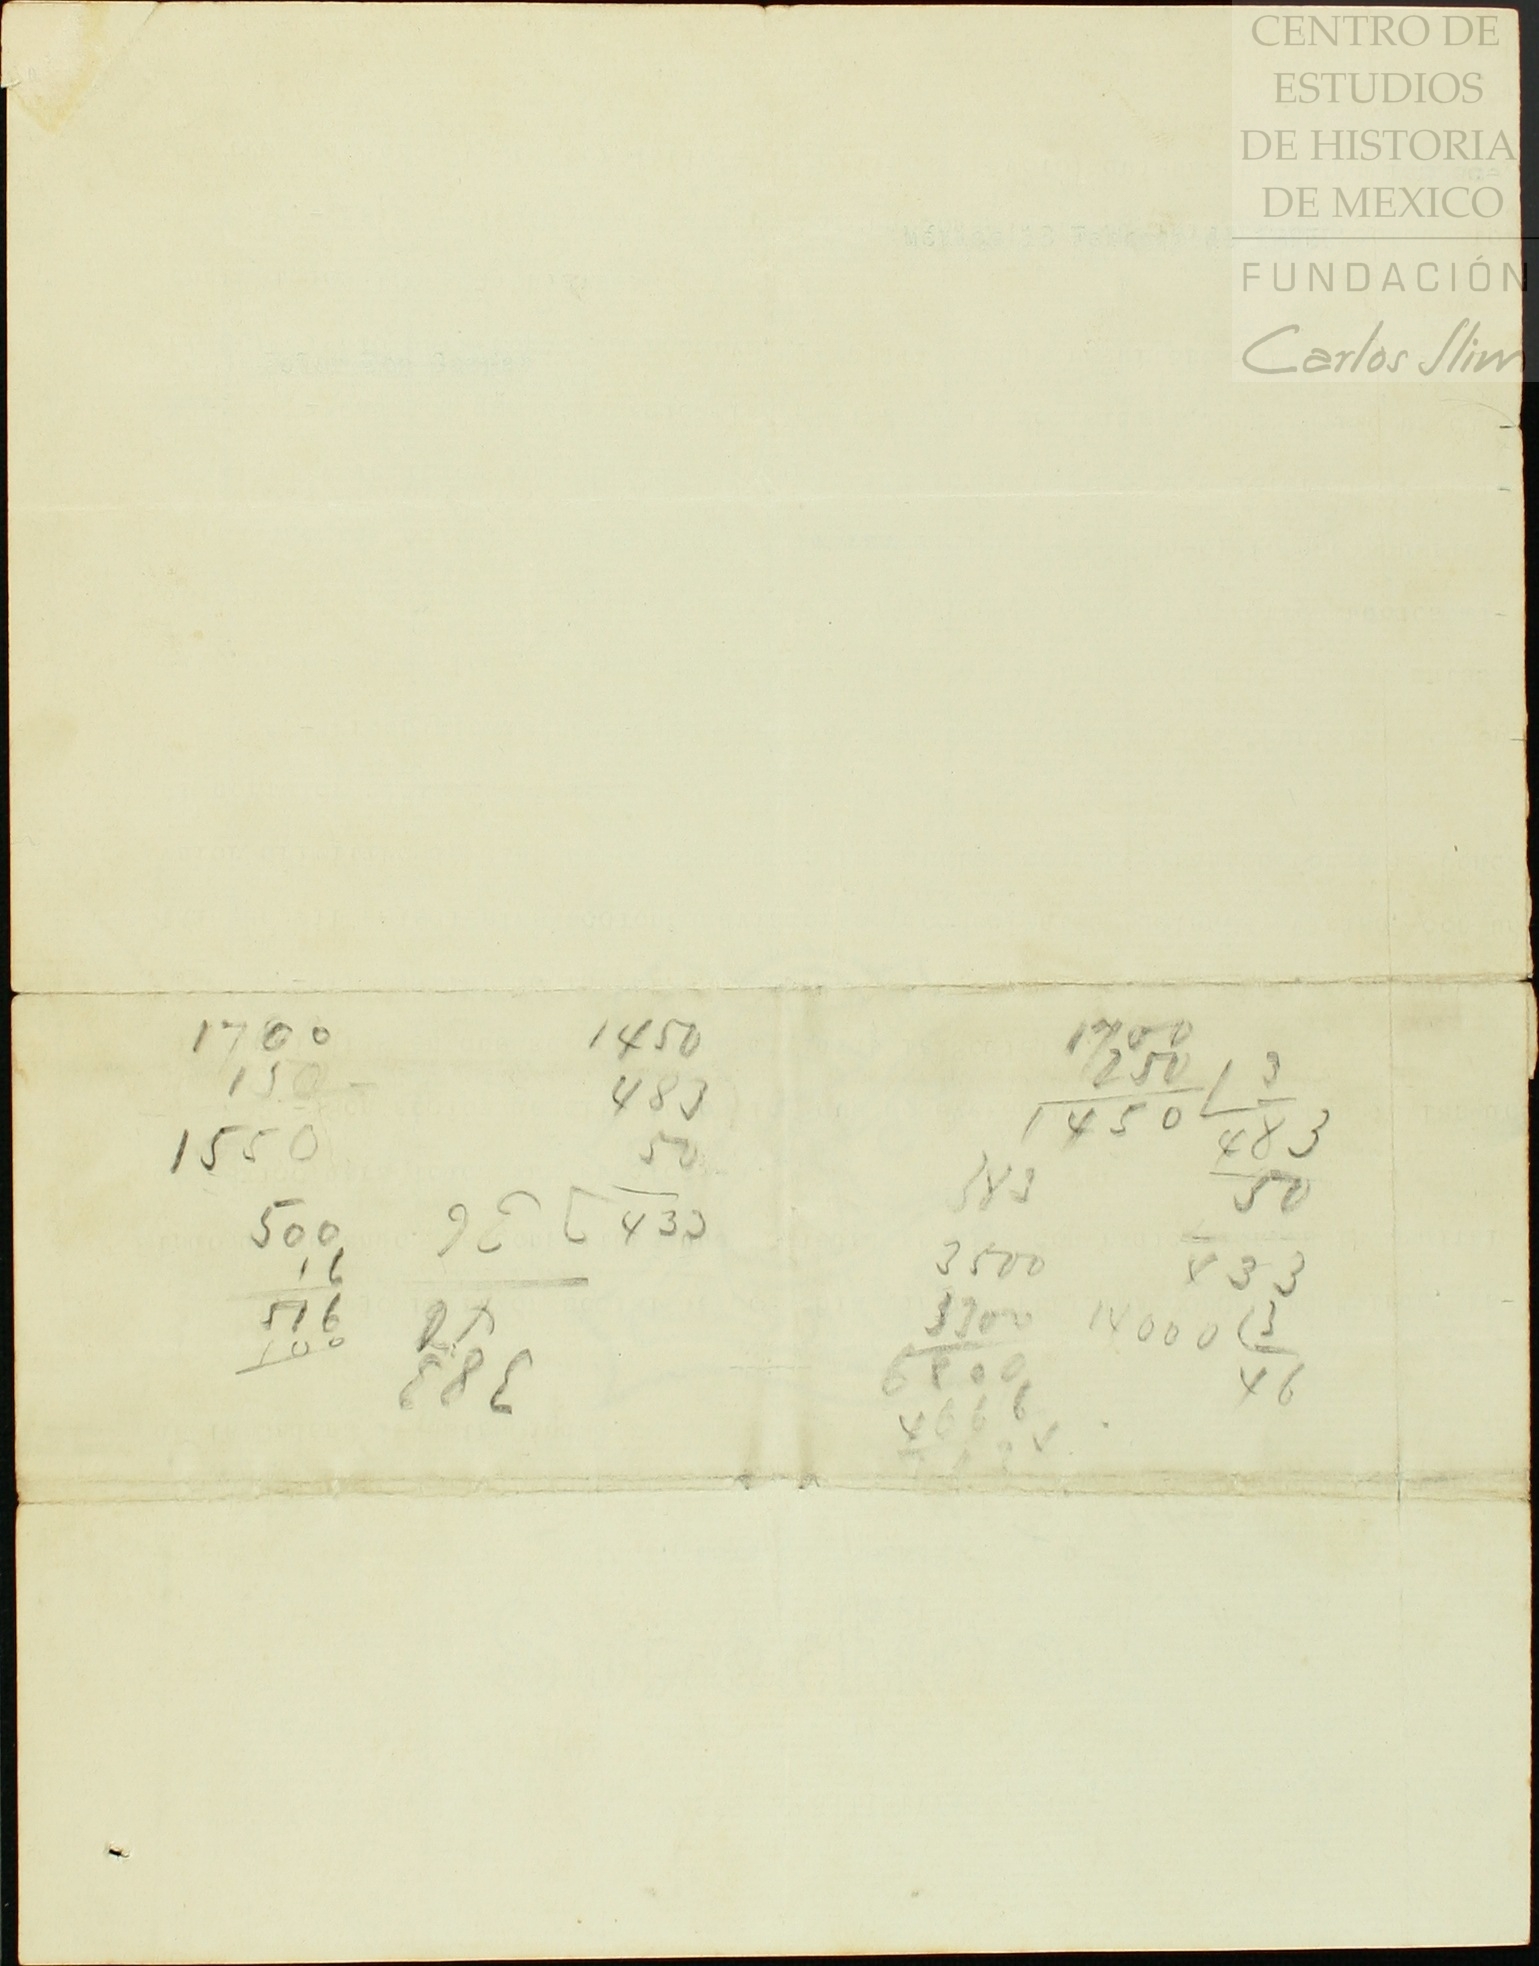 CENTRO DE
ESTUDIOS
DE HISTORIA
DE MEXICO
FUNDACIÓN
Carlos Slim
1700
150
1550
500
16
516
100
1450
483
50
433
383
1700
250 3
1450 483
50
433
383
3500
3300
6800
4666
14000 3
46